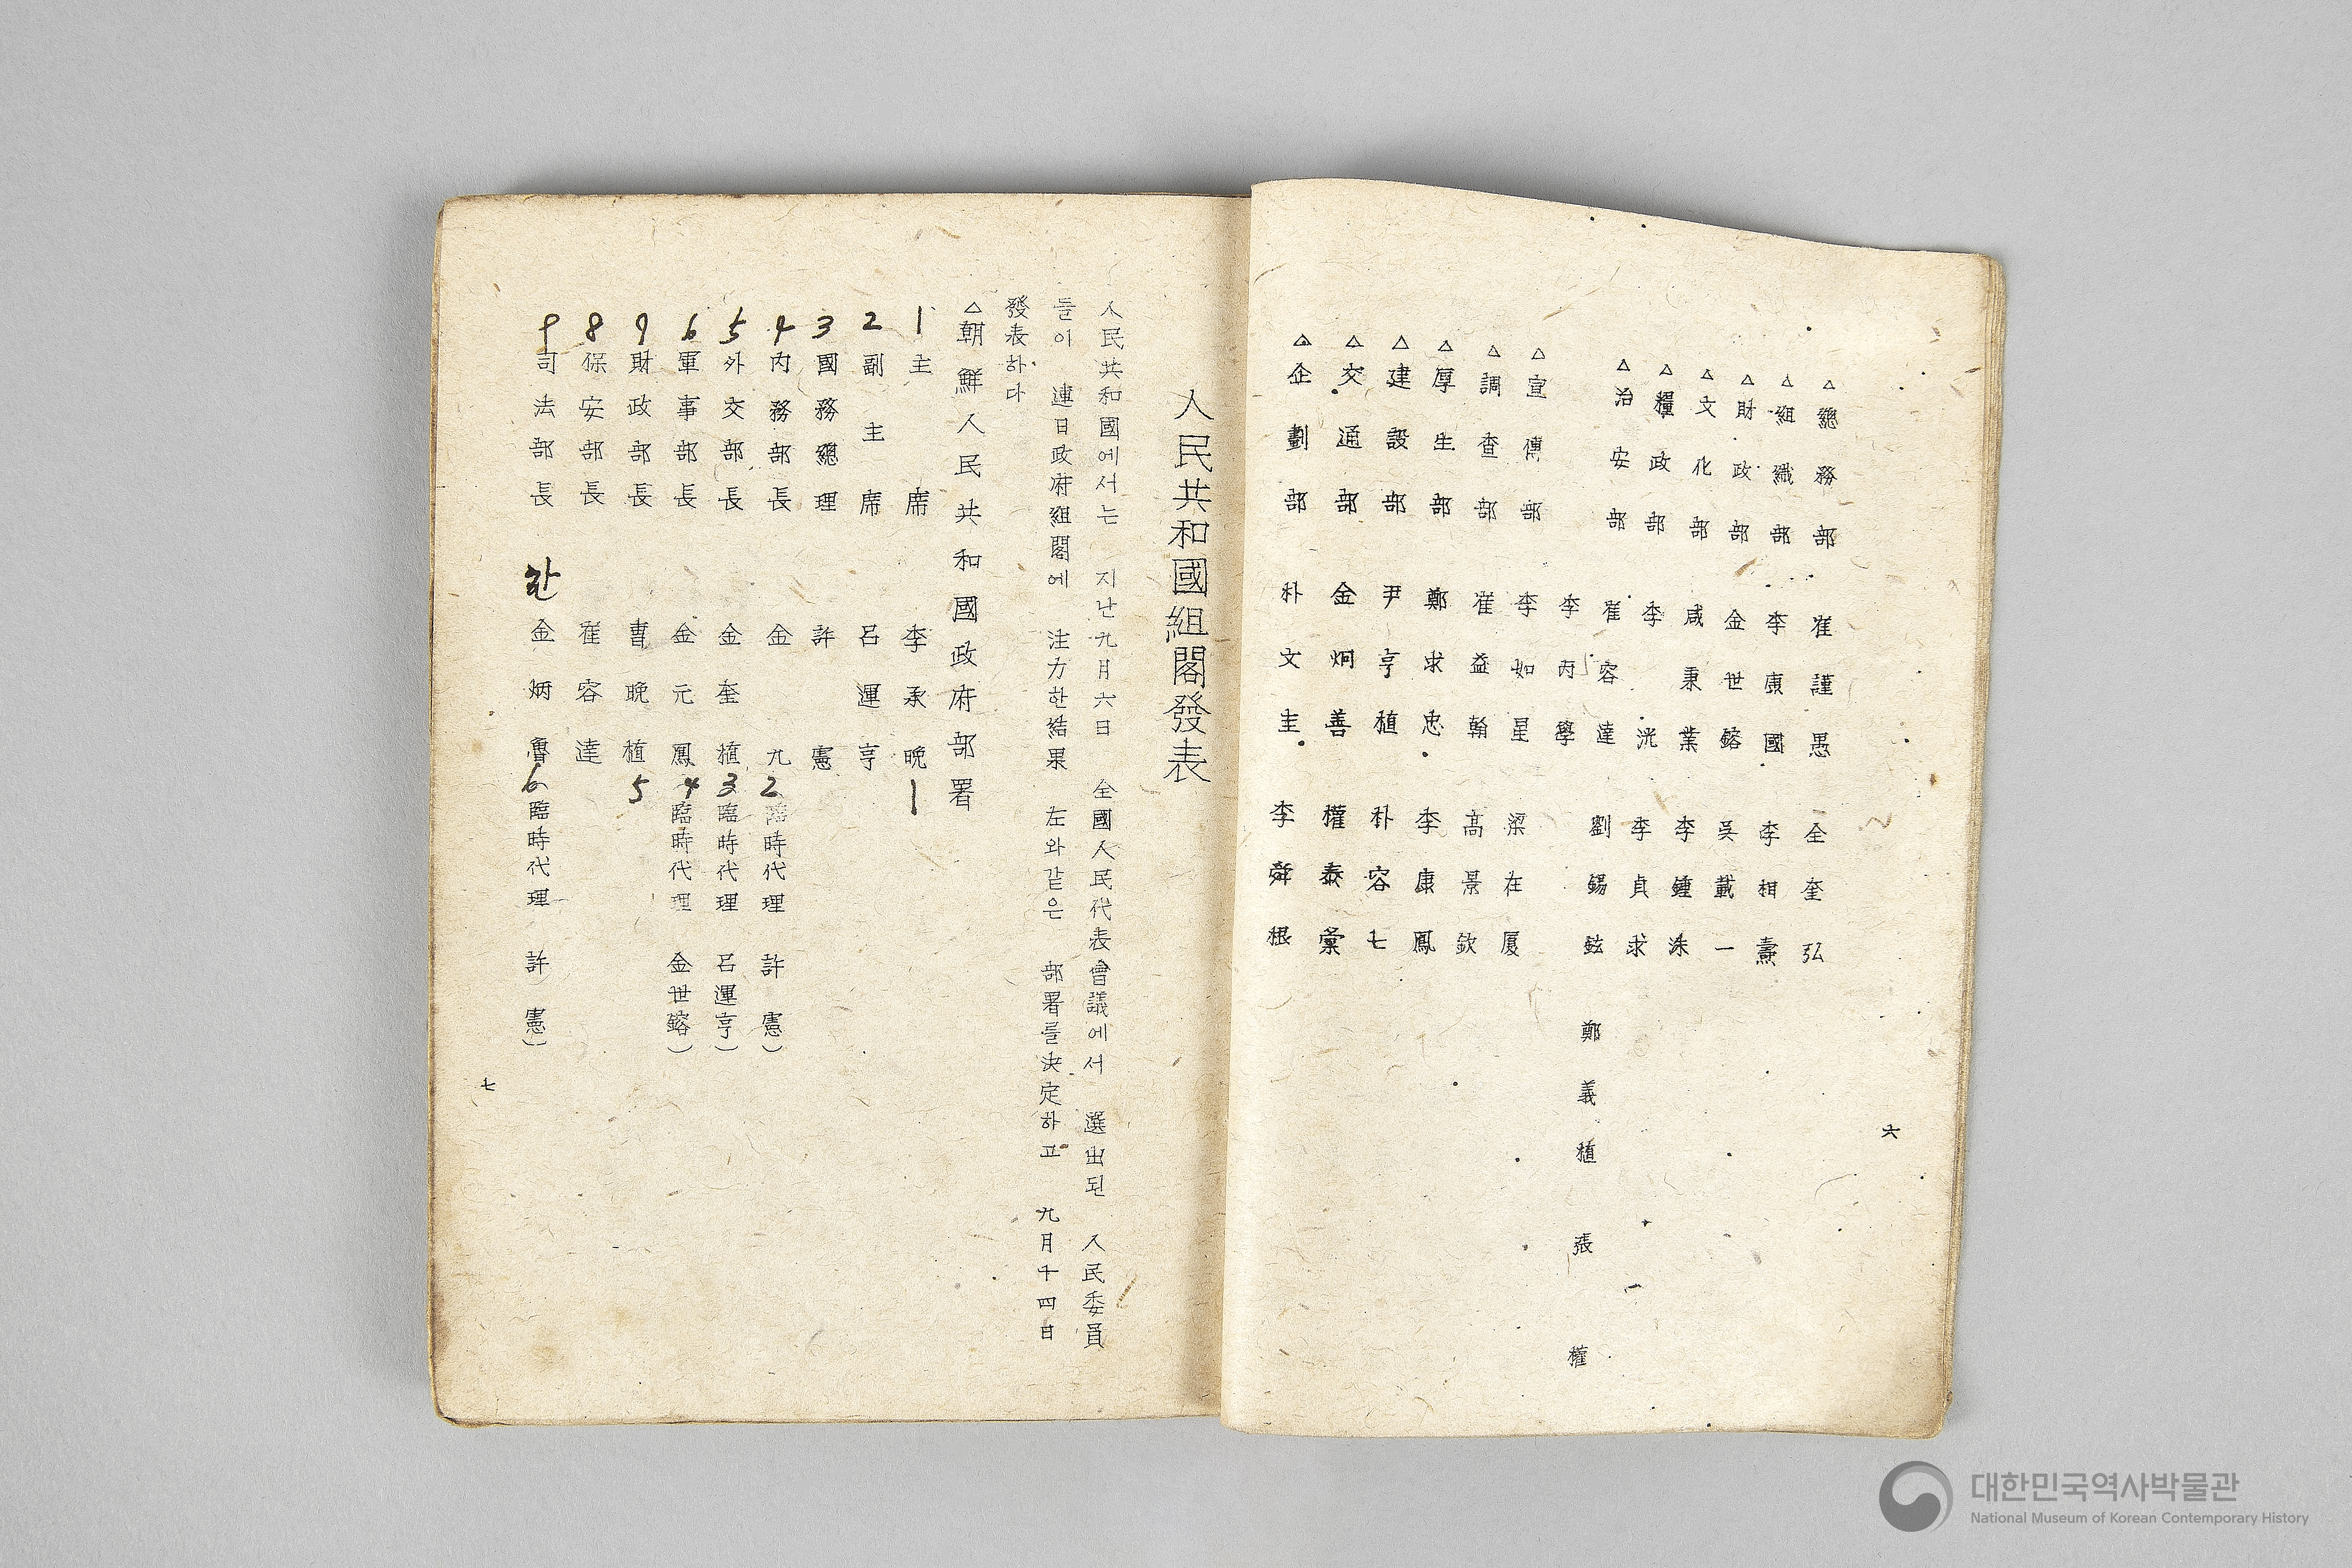 △總務部 崔謹愚 全奎弘
△組織部 李康國 李相燾
△財政部 金世鎔 吳載一
△文化部 咸秉業 李鍾洙
△糧政部 李 洸 李貞求
△治安部 崔容達 劉錫鉉 鄭義植 張 權
李丙學
△宣傳部 李如星 梁在厦
△調查部 崔益翰 高景欽
△厚生部 鄭求忠 李康鳳
△建設部 尹亨植 朴容七
△交通部 金炯善 權泰彙
△企劃部 朴文圭 李舜根
六
人民共和國組閣發表
人民共和國에서는 지난九月六日 全國人民代表會議에서 選出된 人民委員
들이 連日政府組閣에 注力한結果 左와같은 部署를決定하고 九月十四日
發表하다
△朝鮮人民共和國政府部署
1 主席 李承晩 1
2 副主席 呂運亨
3 國務總理 許憲
4 內務部長 金 九 2 臨時代理 許 憲)
5 外交部長 金奎植 3 臨時代理 呂運亨)
6 軍事部長 金元鳳 4 臨時代理 金世鎔)
7 財政部長 曺晩植 5
8 保安部長 崔容達
9 司法部長 金炳魯 6 臨時代理 許 憲)
七
대한민국역사박물관
National Museum of Korean Contemporary History